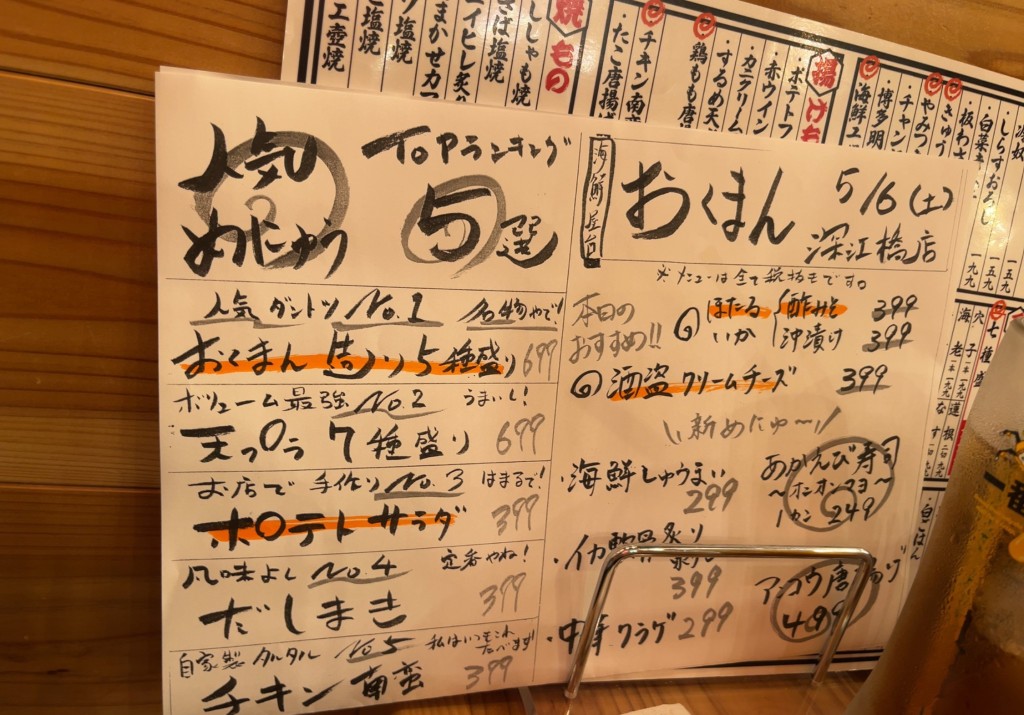 人気
めにゅう
TOPランキング
5選
人気ダントツ No.1 名物やで!
おくまん造り5種盛り 699
ボリューム最強 No.2 うまいし!
天プラ7種盛り 699
お店で手作り No.3 はまるで!
ポテトサラダ 399
風味よし No.4 定番やね!
だしまき 399
自家製タルタル No.5 私はいつもこれたべます!
チキン南蛮 399
海鮮屋台
おくまん
5/6(土)
深江橋店
※メニューは全て税抜きです。
本日の
おすすめ!!
ほたる
いか
酢みそ 399
沖漬け 399
酒盗クリームチーズ 399
\\新めにゅ〜//
・海鮮しゅうまい 299
あかえび寿司
〜オニオンマヨ〜
1カン 249
炙り
399
・中華クラゲ 299
アンコウ唐揚げ
499
焼もの
工壺焼
塩焼
さば塩焼
ししゃも焼
・たこ唐揚げ
・チキン南蛮
・するめ天
・カニクリーム
・赤ウイン
・ポテトフ
揚げもの
・しらすおろし 一五九
一九九
白ごはん
一番